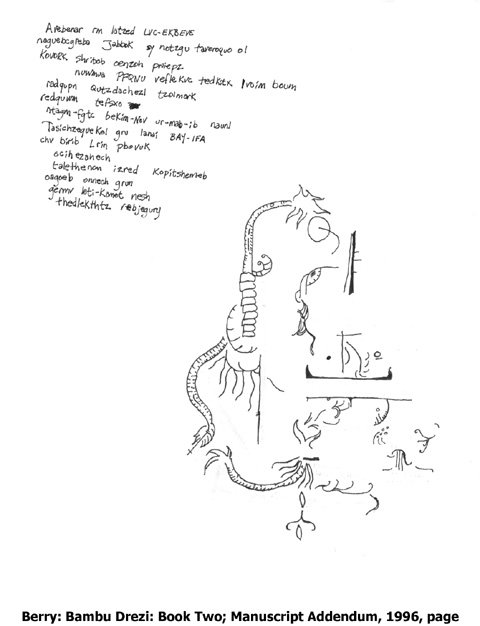 Arebanar rm lotzed LUC-EKBEVE
naguebcgreba Jabbok sy notzgu taveroquo ol
KOVORK shribob oenzoh priiepz
nuwava PPRNU veflekve tedkitk Ivoim boum
radgupn Qutzdachezl tzolmork
redguwm tefsxo
ntagm-fgtc bekim-Nov ur-mab-ib naunl
Tasichzequekal gru lanai BAY-IFA
chv birib Lrin pbovok
ocihezonech
talethenon izred Kopitshemeb
oagoeb onnech grun
germr loti-Komot nesh
thedlekthtz rebjegurg
Berry: Bambu Drezi: Book Two; Manuscript Addendum, 1996, page